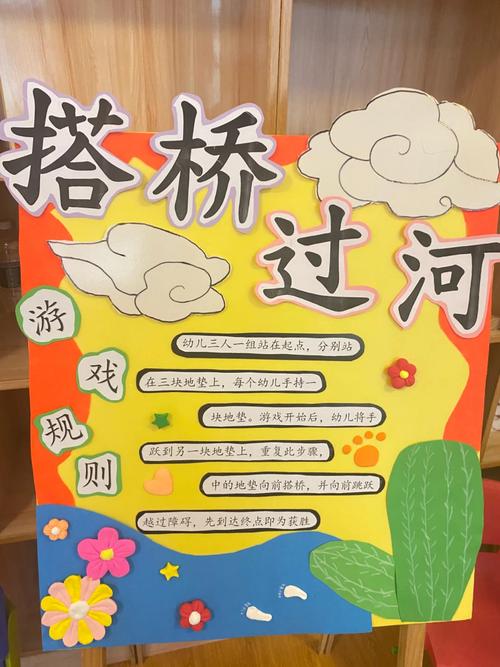 搭桥
过河
游戏规则
幼儿三人一组站在起点，分别站
在三块地垫上，每个幼儿手持一
块地垫。游戏开始后，幼儿将手
跃到另一块地垫上，重复此步骤，
中的地垫向前搭桥，并向前跳跃
越过障碍，先到达终点即为获胜